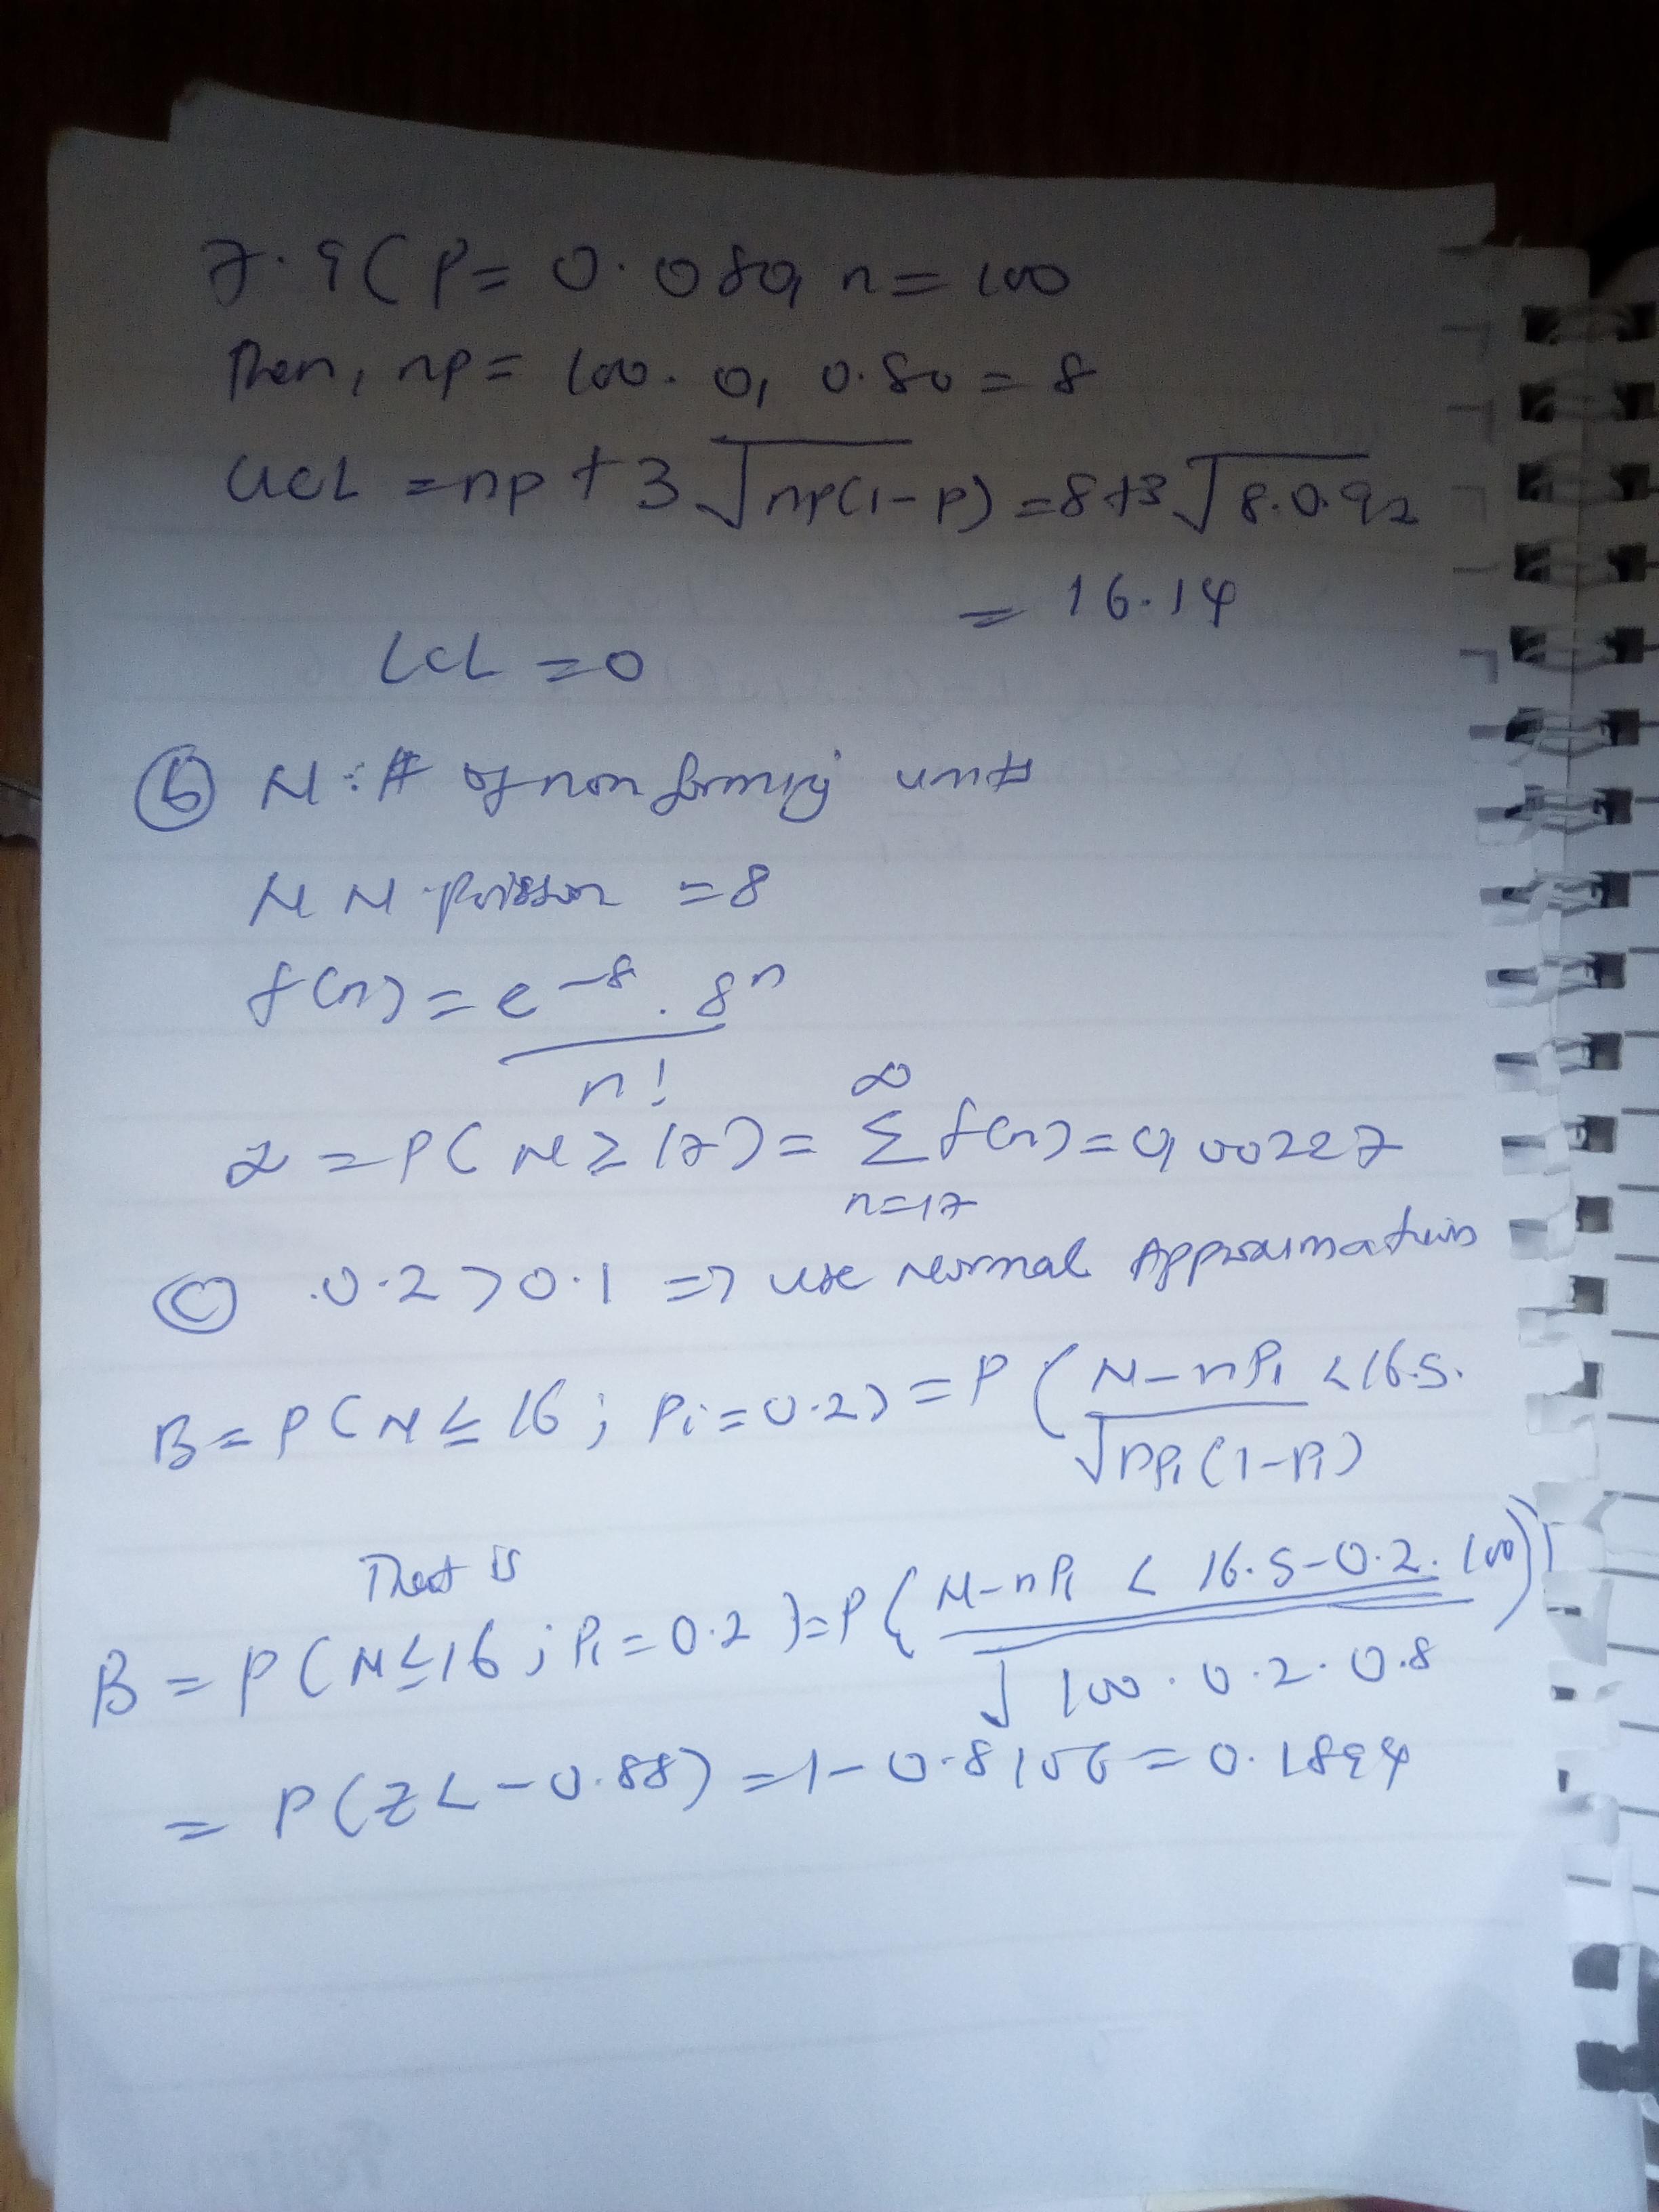 7.9 ( P = 0.080, n = 100
Then, np = 100. 0, 0.80 = 8
UCL = np + 3 √np(1-p) = 8+3 √8.0.92
= 16.14
LCL = 0
(b) N : # of non forming units
N N Poisson = 8
f(n) = e^-8 . 8^n
n!
α = P( N ≥ 17) = ∞ Σ n=17 f(n) = 0,00227
(c) .0.2 > 0.1 => use Normal Approximation
B = P(N ≤ 16 ; Pi = 0.2) = P ( N - nP1 < 16.5.
√nP1 (1-P1)
That is
B = P(N ≤ 16 ; P1 = 0.2) = P ( N - nP1 < 16.5 - 0.2. 100 )
√100 . 0.2 . 0.8
= P(Z < -0.88) = 1 - 0.8106 = 0.1894